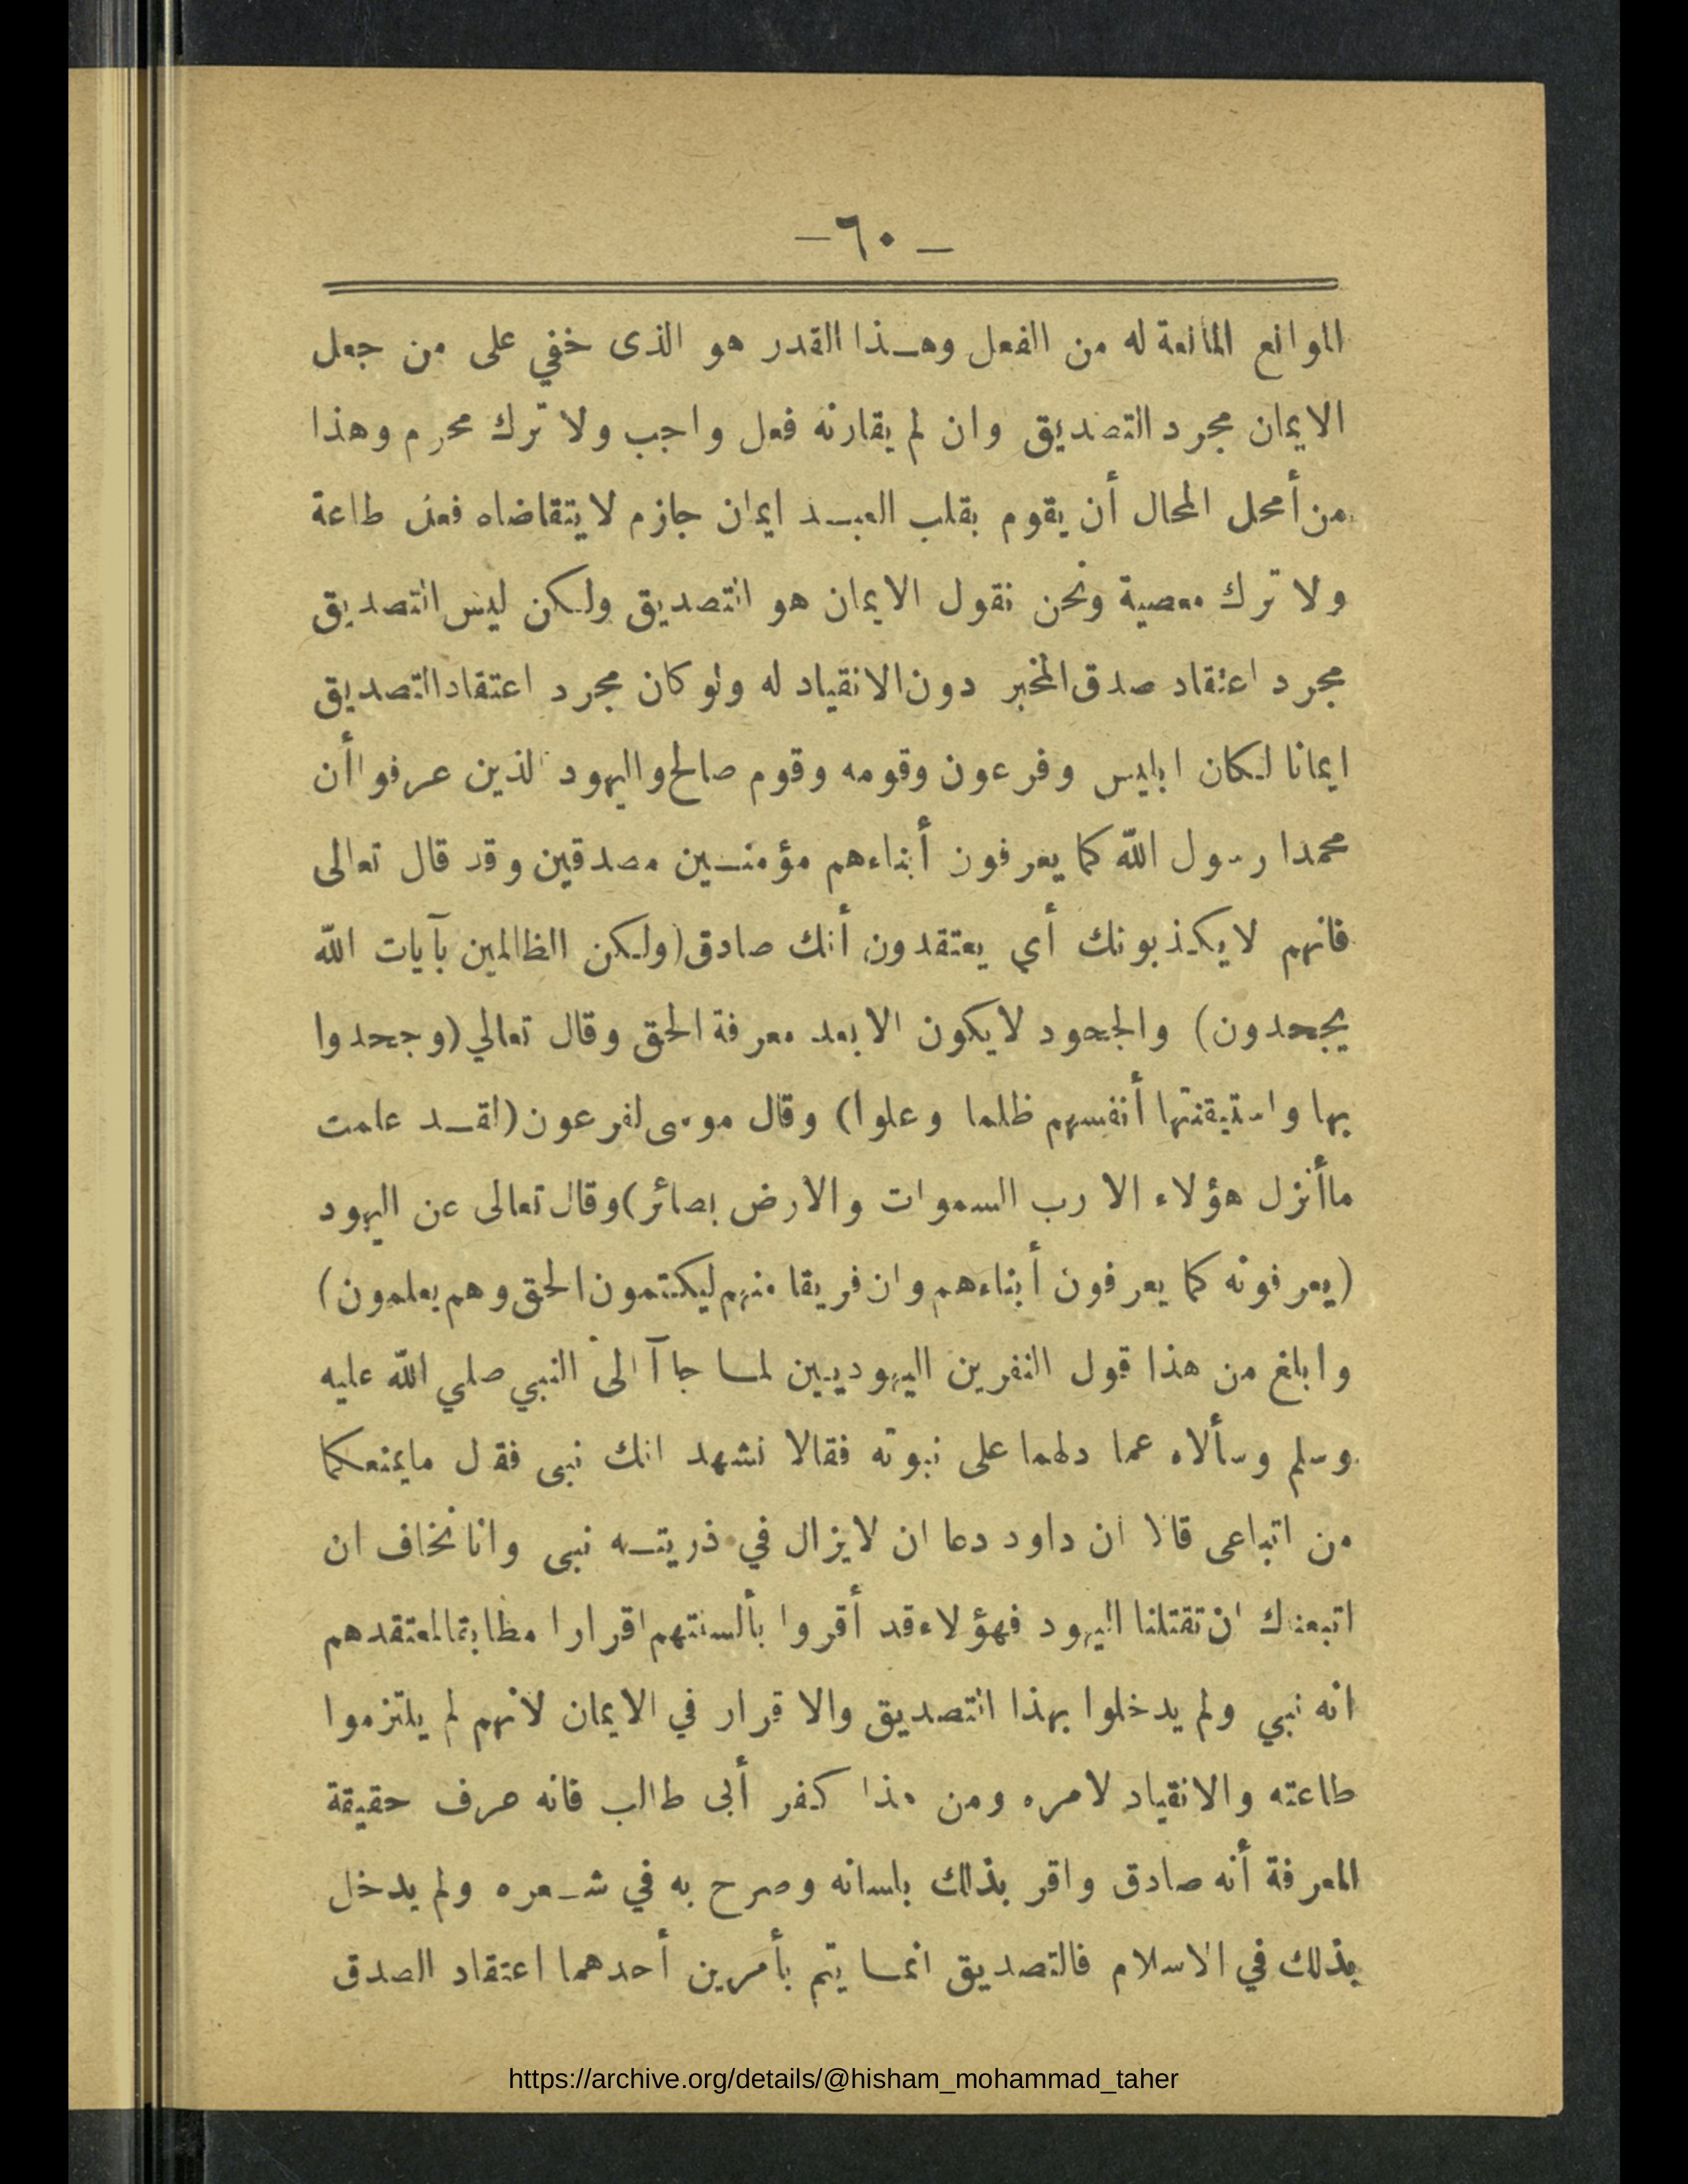 — ٦٠ —
الموانع المانعة له من الفعل وهذا القدر هو الذى خفي على من جعل
الايمان مجرد التصديق وان لم يقارنه فعل واجب ولا ترك محرم وهذا
من أمحل المحال أن يقوم بقلب العبد ايمان جازم لا يتقاضاه فعل طاعة
ولا ترك معصية ونحن نقول الايمان هو التصديق ولكن ليس التصديق
مجرد اعتقاد صدق المخبر دون الانقياد له ولو كان مجرد اعتقاد التصديق
ايمانا لكان ابليس وفرعون وقومه وقوم صالح واليهود الذين عرفوا أن
محمدا رسول الله كما يعرفون أبناءهم مؤمنين مصدقين وقد قال تعالى
فانهم لا يكذبونك أي يعتقدون أنك صادق (ولكن الظالمين بآيات الله
يجحدون) والجحود لا يكون الا بعد معرفة الحق وقال تعالي (وجحدوا
بها واستيقنتها أنفسهم ظلما وعلوا) وقال موسى لفرعون (لقد علمت
ما أنزل هؤلاء الا رب السموات والارض بصائر) وقال تعالى عن اليهود
(يعرفونه كما يعرفون أبناءهم وان فريقا منهم ليكتمون الحق وهم يعلمون)
وابلغ من هذا قول النفرين اليهوديين لما جاآ الى النبي صلي الله عليه
وسلم وسألاه عما دلهما على نبوته فقالا نشهد انك نبى فقل مايمنعكما
من اتباعى قالا ان داود دعا ان لايزال في ذريته نبى وانا نخاف ان
اتبعناك ان تقتلنا اليهود فهؤلاء قد أقروا بألسنتهم اقرارا مطابقا لمعتقدهم
انه نبي ولم يدخلوا بهذا التصديق والاقرار في الايمان لأنهم لم يلتزموا
طاعته والانقياد لامره ومن هذا كفر أبى طالب فانه عرف حقيقة
المعرفة أنه صادق واقر بذلك بلسانه وصرح به في شعره ولم يدخل
بذلك في الاسلام فالتصديق انما يتم بأمرين أحدهما اعتقاد الصدق
https://archive.org/details/@hisham_mohammad_taher